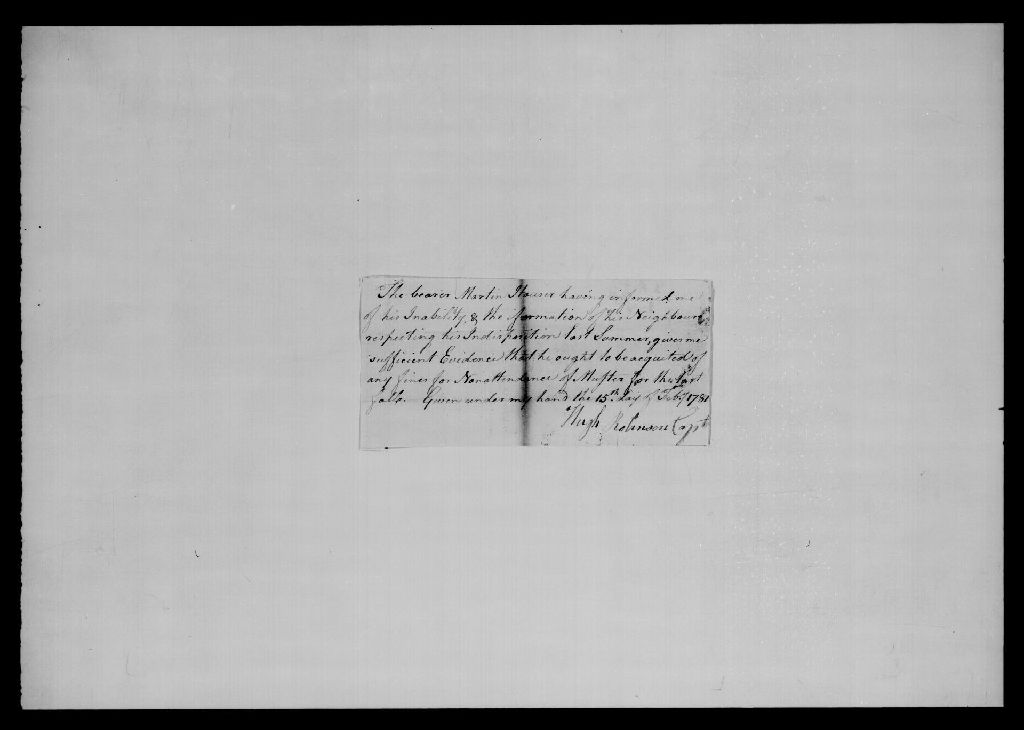 The bearer Martin Houser having informed me
of his Inability, & the iformation of his Neighbours
respecting his Indisposition last Sommer, gives me
sufficient Evidence that he ought to be acquited of
any fines for Nonattendance of Muster for the last
falls. Given under my hand the 15th day of Feby 1781
Hugh Robinson Capt